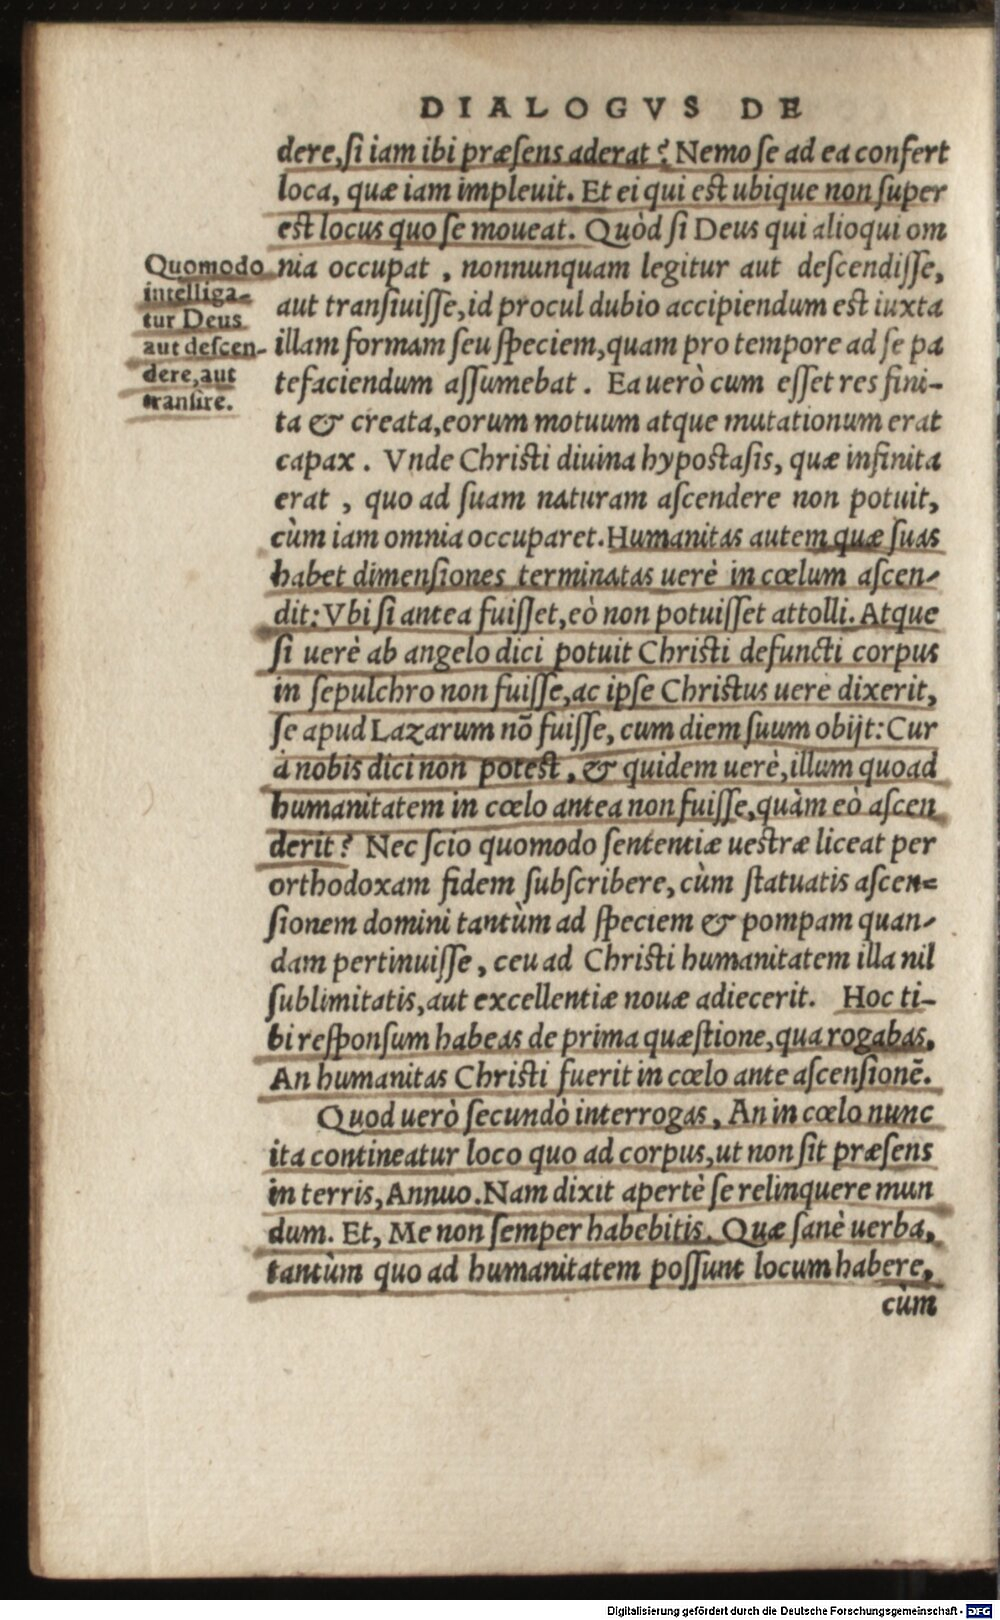 DIALOGVS DE
dere, si iam ibi præsens aderat? Nemo se ad ea confert
loca, quæ iam impleuit. Et ei qui est ubique non super
est locus quo se moueat. Quòd si Deus qui alioqui om
nia occupat, nonnunquam legitur aut descendisse,
aut transiuisse, id procul dubio accipiendum est iuxta
illam formam seu speciem, quam pro tempore ad se pa
tefaciendum assumebat. Ea uerò cum esset res fini-
ta & creata, eorum motuum atque mutationum erat
capax. Vnde Christi diuina hypostasis, quæ infinita
erat, quo ad suam naturam ascendere non potuit,
cùm iam omnia occuparet. Humanitas autem quæ suas
habet dimensiones terminatas uerè in cœlum ascen-
dit: Vbi si antea fuisset, eò non potuisset attolli. Atque
si uerè ab angelo dici potuit Christi defuncti corpus
in sepulchro non fuisse, ac ipse Christus uere dixerit,
se apud Lazarum nõ fuisse, cum diem suum obijt: Cur
à nobis dici non potest, & quidem uerè, illum quoad
humanitatem in cœlo antea non fuisse, quàm eò ascen
derit? Nec scio quomodo sententiæ uestræ liceat per
orthodoxam fidem subscribere, cùm statuatis ascen=
sionem domini tantùm ad speciem & pompam quan-
dam pertinuisse, ceu ad Christi humanitatem illa nil
sublimitatis, aut excellentiæ nouæ adiecerit. Hoc ti-
bi responsum habeas de prima quæstione, qua rogabas,
An humanitas Christi fuerit in cœlo ante ascensionẽ.
Quod uerò secundò interrogas, An in cœlo nunc
ita contineatur loco quo ad corpus, ut non sit præsens
in terris, Annuo. Nam dixit apertè se relinquere mun
dum. Et, Me non semper habebitis. Quæ sanè uerba,
tantùm quo ad humanitatem possunt locum habere,
cùm
Quomodo
intelliga-
tur Deus
aut descen-
dere, aut
transire.
Digitalisierung gefördert durch die Deutsche Forschungsgemeinschaft - DFG